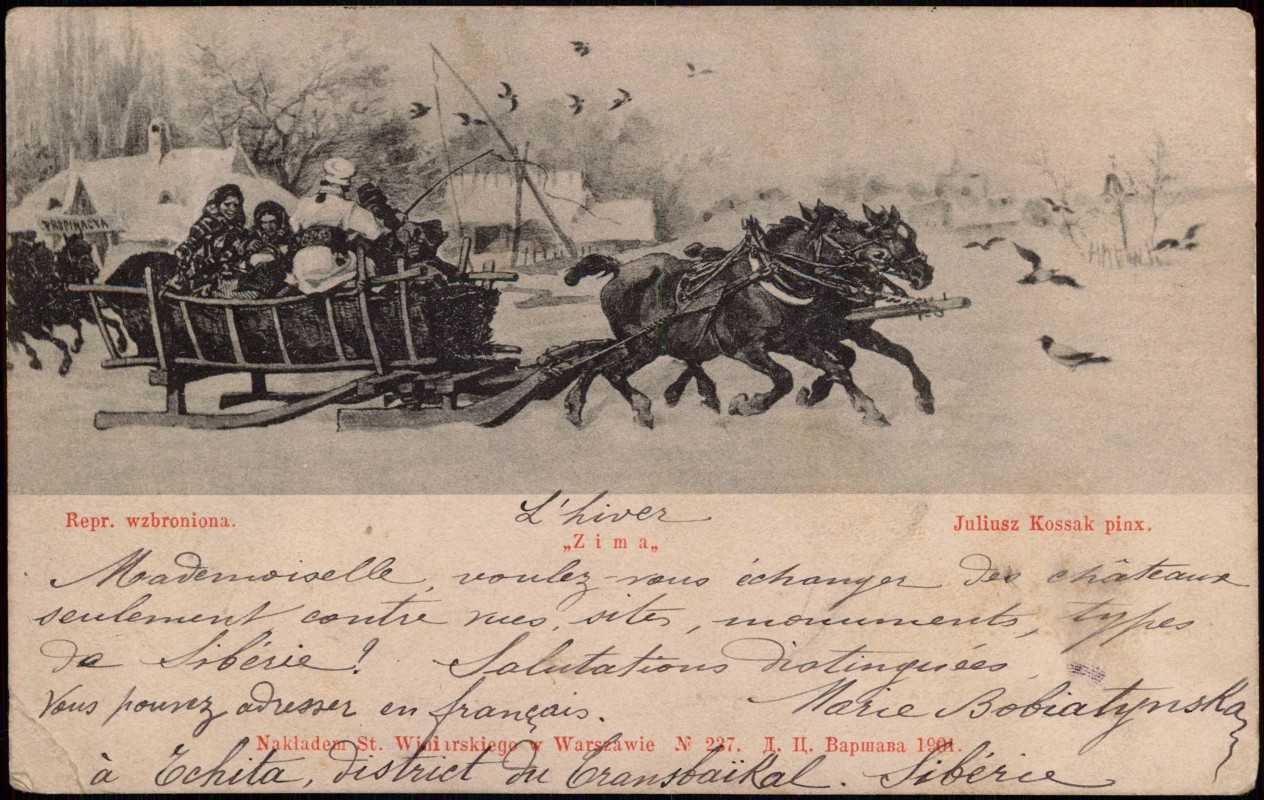 PROPINACYA
L'hiver
Repr. wzbroniona.
„Zima„
Juliusz Kossak pinx.
Mademoiselle, voulez-vous échanger des châteaux
seulement contre vues, sites, monuments, types
de Sibérie? Salutations distinguées
Vous pouvez adresser en français. Marie Bobiatynska
Nakładem St. Winiarskiego w Warszawie № 227. Д. Ц. Варшава 1901.
à Tchita, district du Transbaïkal. Sibérie